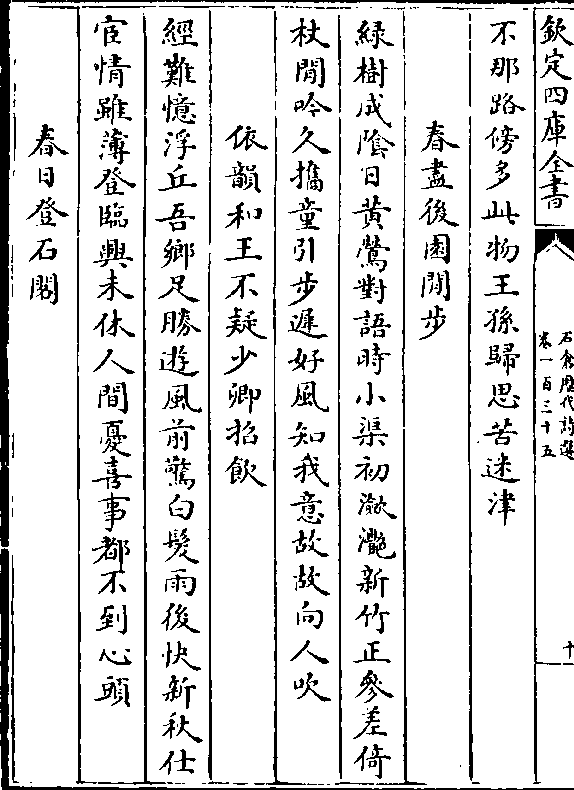 欽定四庫全書
石倉歷代詩選
卷一百三十五
十
不那路傍多此物王孫歸思苦迷津
春盡後園閒步
綠樹成隂日黃鶯對語時小渠初瀲灧新竹正參差倚
杖閒吟久攜童引步遲好風知我意故故向人吹
依韻和王不疑少卿招飲
經難憶浮丘吾鄉足勝遊風前驚白髮雨後快新秋仕
宦情雖薄登臨興未休人間憂喜事都不到心頭
春日登石閣